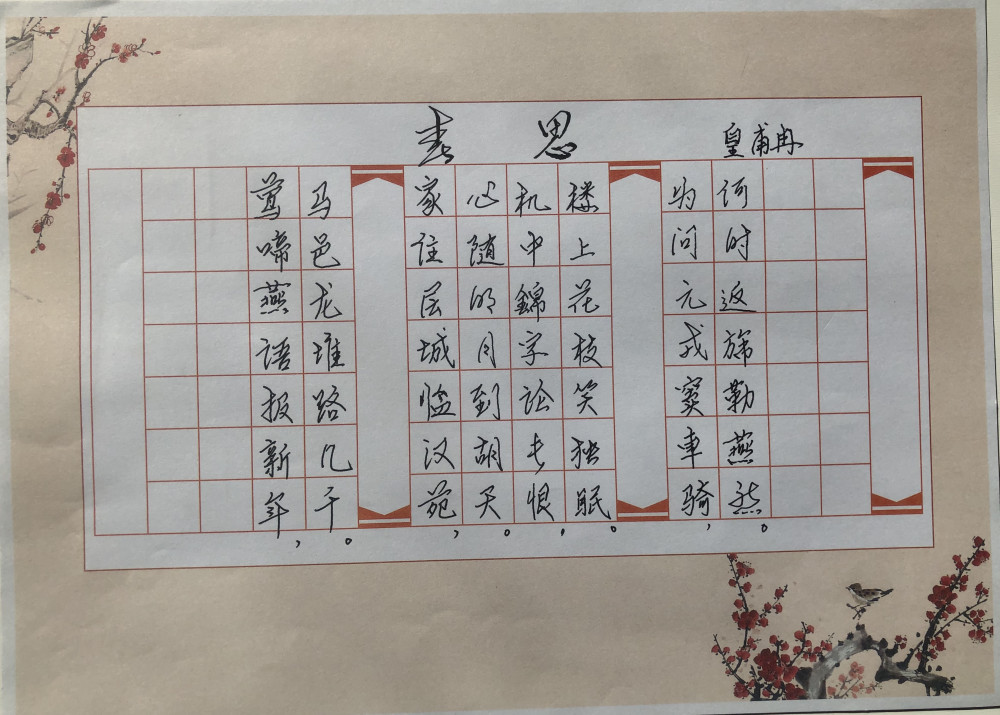 春思
皇甫冉
莺啼燕语报新年，
马邑龙堆路几千。
家住层城临汉苑，
心随明月到胡天。
机中錦字论长恨，
楼上花枝笑独眠。
为问元戎窦車骑，
何时返旆勒燕然。